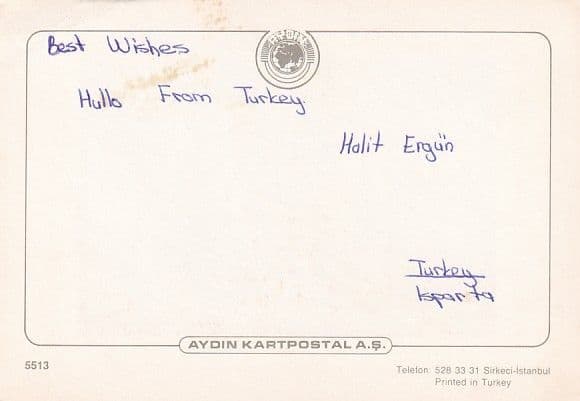 AYDIN
Best Wishes
Hullo From Turkey.
Halit Ergün
Turkey
Isparta
AYDIN KARTPOSTAL A.Ş.
5513
Telefon: 528 33 31 Sirkeci-İstanbul
Printed in Turkey